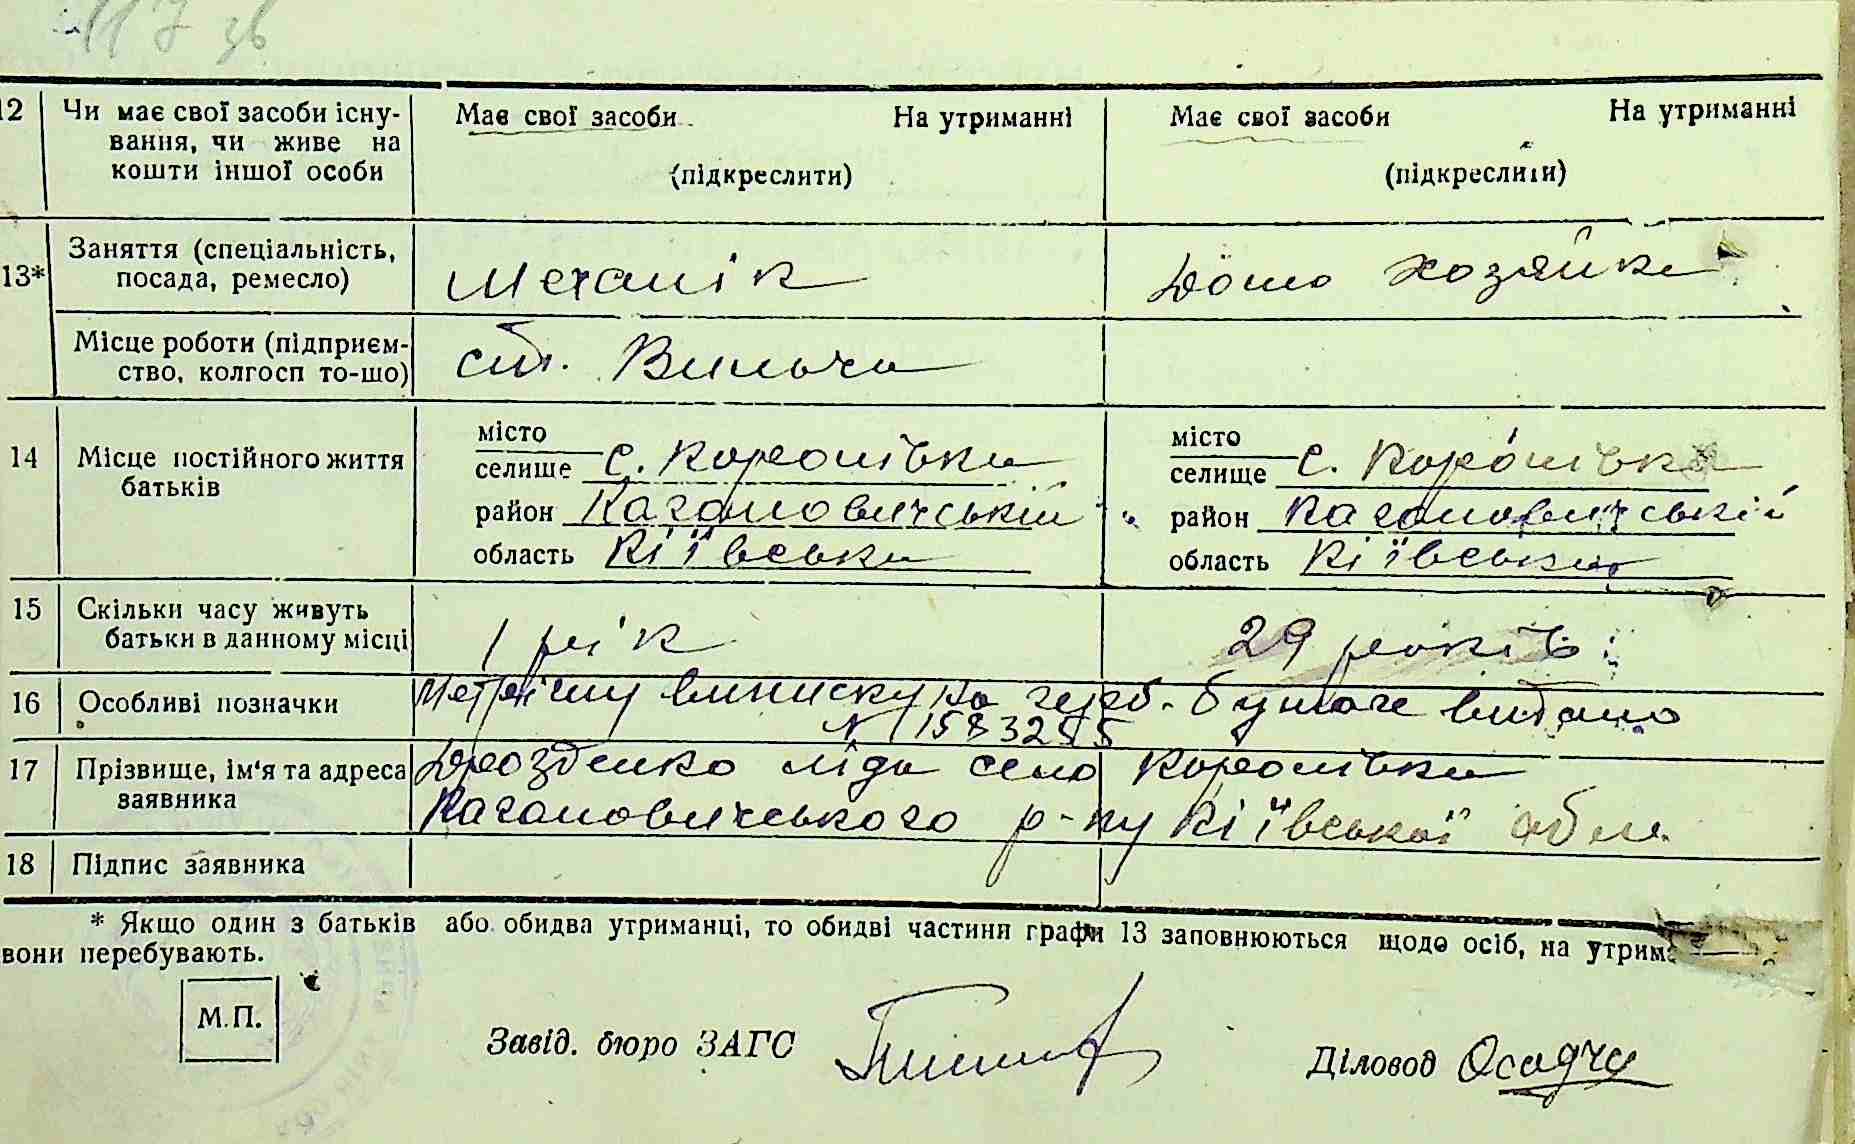 117 зв
12 Чи має свої засоби існу- Має свої засоби На утриманні Має свої засоби На утриманні
вання, чи живе на
кошти іншої особи (підкреслити) (підкреслити)
13* Заняття (спеціальність,
посада, ремесло) Механік Домо хозяйка
Місце роботи (підприєм-
ство, колгосп то-що) ст. Вильча
14 Місце постійного життя
батьків
місто місто
селище с. Королівка селище с. Королівка
район Кагановичський район Кагановичській
область Кіївська область Кіївська
15 Скільки часу живуть
батьки в данному місці 1 рік 29 років
16 Особливі позначки Метрічну виписку на герб. бумаге видано
N 1583255
17 Прізвище, ім'я та адреса Дрозденко Ліда село Королівка
заявника Кагановичського р-ну Кіївської обл.
18 Підпис заявника
* Якщо один з батьків або обидва утриманці, то обидві частини графи 13 заповнюються щодо осіб, на
вони перебувають.
М.П.
Завід. бюро ЗАГС
Діловод Осадчу